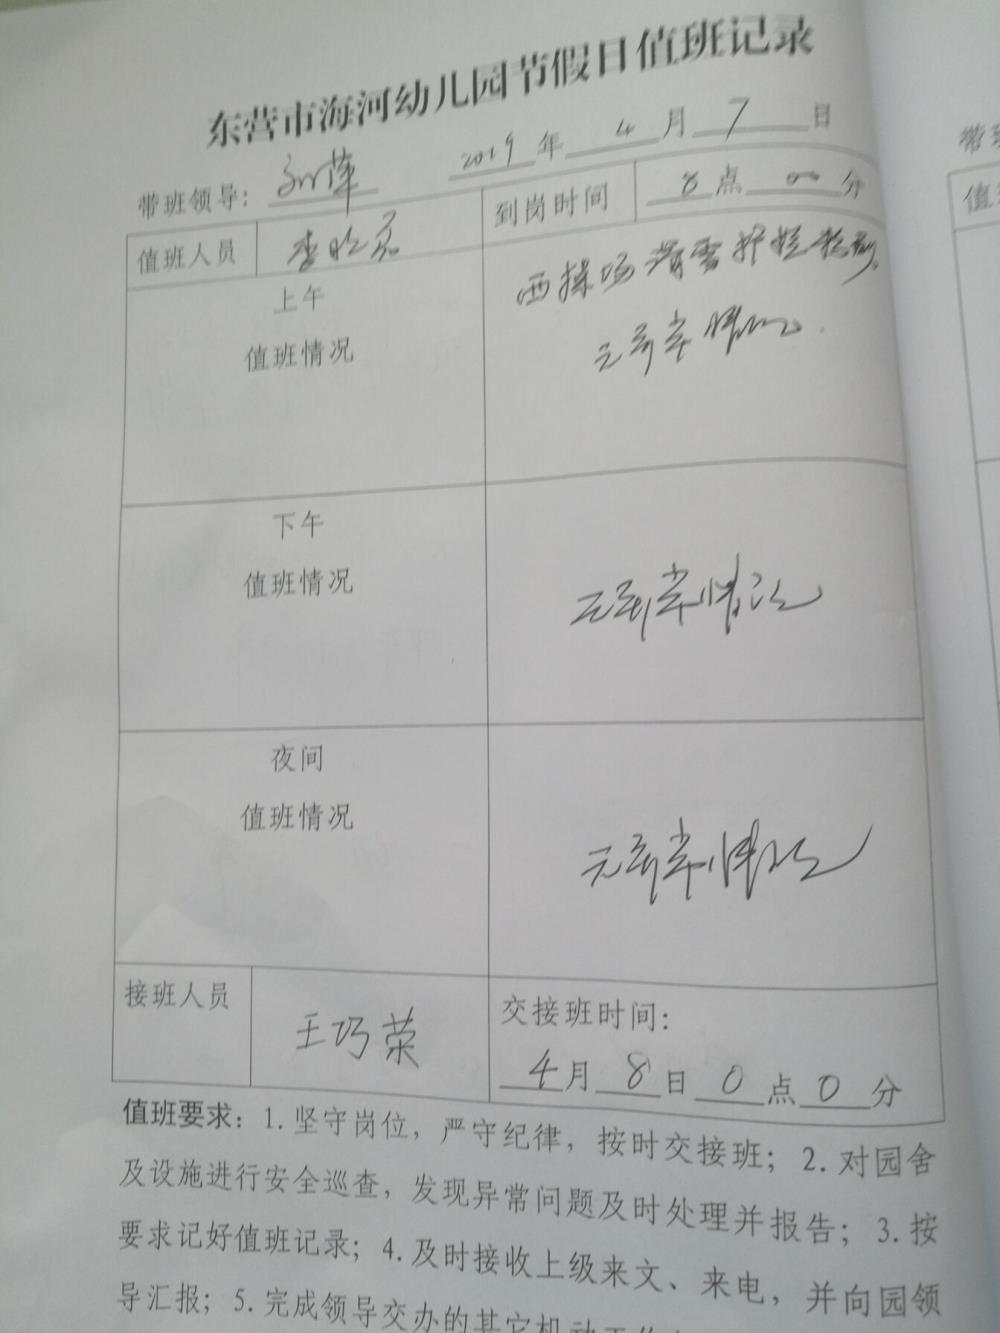 东营市海河幼儿园节假日值班记录
带班领导: 萍 2019年4月7日
值班人员 李 到岗时间 8点00分
上午
值班情况
西操场 护栏
无异常情况.
下午
值班情况
无异常情况
夜间
值班情况
无异常情况
接班人员 王巧荣 交接班时间:
4月8日0点0分
值班要求: 1. 坚守岗位, 严守纪律, 按时交接班; 2. 对园舍
及设施进行安全巡查, 发现异常问题及时处理并报告; 3. 按
要求记好值班记录; 4. 及时接收上级来文、来电, 并向园领
导汇报; 5. 完成领导交办的其它机动工作
带班
值